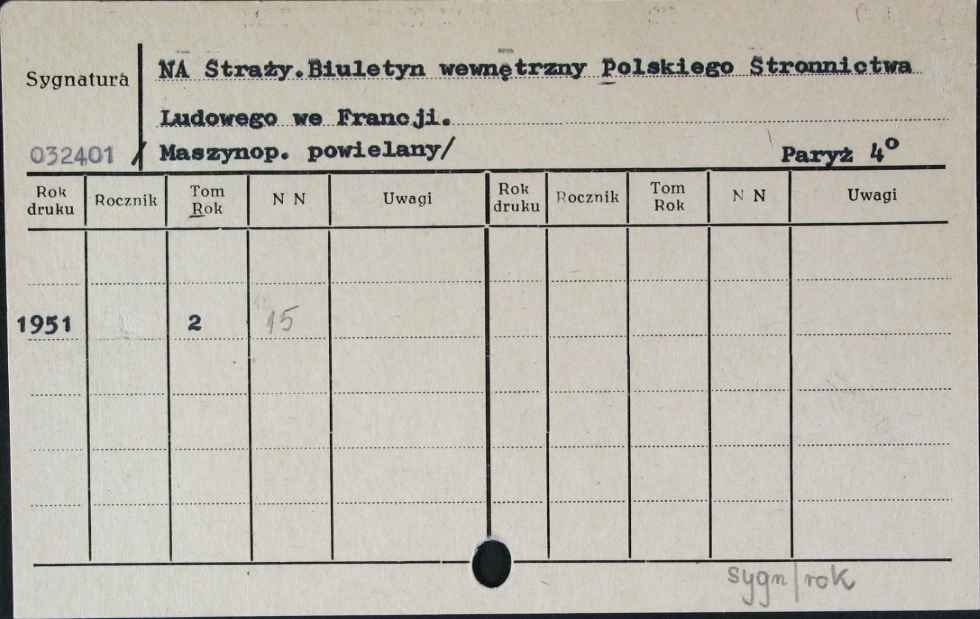 Sygnatura
NA Straży.Biuletyn wewnętrzny Polskiego Stronnictwa
Ludowego we Francji.
032401 / Maszynop. powielany/ Paryż 4°
Rok druku Rocznik Tom Rok N N Uwagi Rok druku Rocznik Tom Rok N N Uwagi
1951 2 15
sygn/rok